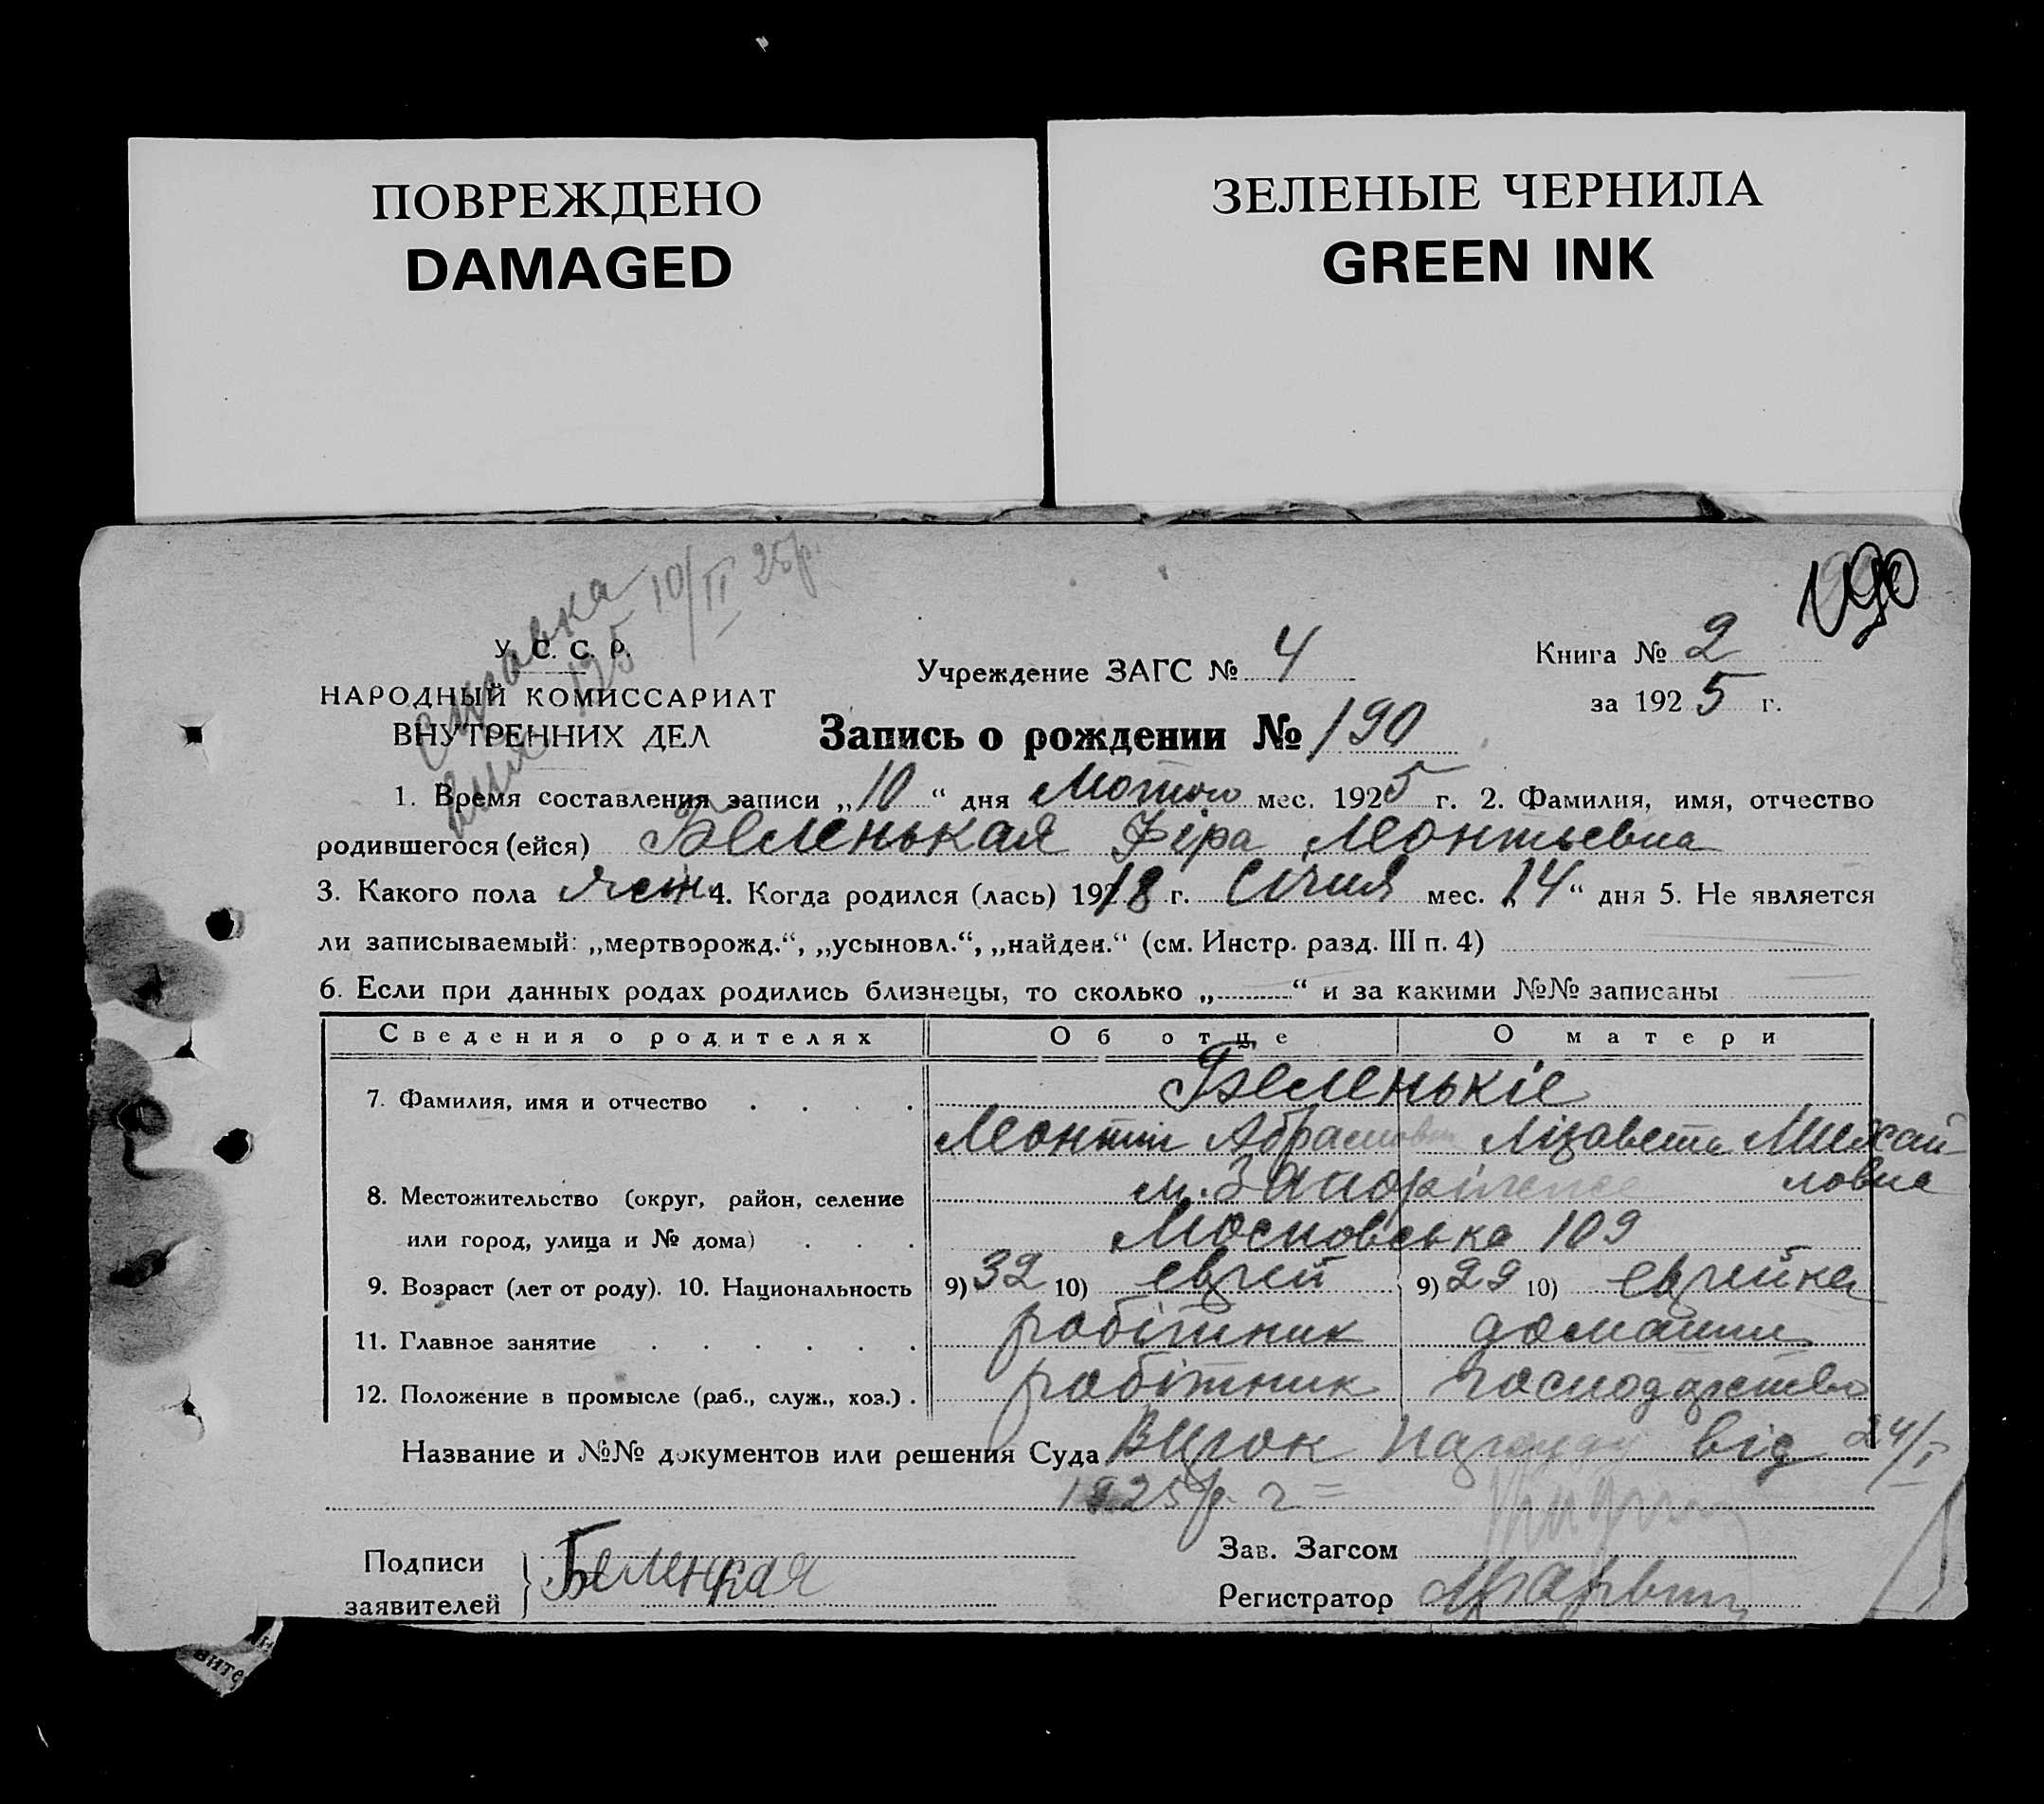 ПОВРЕЖДЕНО
DAMAGED
ЗЕЛЕНЫЕ ЧЕРНИЛА
GREEN INK
190
Справка 10/II 25р.
125
У. С. С. Р.
НАРОДНЫЙ КОМИССАРИАТ
ВНУТРЕННИХ ДЕЛ
Учреждение ЗАГС № 4
Книга № 2
за 1925 г.
Запись о рождении № 190
1. Время составления записи „10“ дня Лютого мес. 1925 г. 2. Фамилия, имя, отчество
родившегося (ейся) Беленькая Фіра Леонтьевна
3. Какого пола жен 4. Когда родился (лась) 1918 г. Січня мес. „14“ дня 5. Не является
ли записываемый: „мертворожд.“, „усыновл.“, „найден.“ (см. Инстр. разд. III п. 4)
6. Если при данных родах родились близнецы, то сколько „ “ и за какими №№ записаны
Сведения о родителях Об отце О матери
7. Фамилия, имя и отчество . . . . Беленькіе
Леонтий Абрамович Лізавета Михай-
ловна
8. Местожительство (округ, район, селение м. Запоріжже
или город, улица и № дома) . . . Московська 109
9. Возраст (лет от роду). 10. Национальность 9) 32 10) еврей 9) 29 10) еврейка
11. Главное занятие . . . . . . робітник домашнє
12. Положение в промысле (раб., служ., хоз.) . робітник господарство
Название и №№ документов или решения Суда Вирок Нарсуду від 24/I
1925 р.
Подписи
заявителей } Беленкая
Зав. Загсом
Регистратор
вите